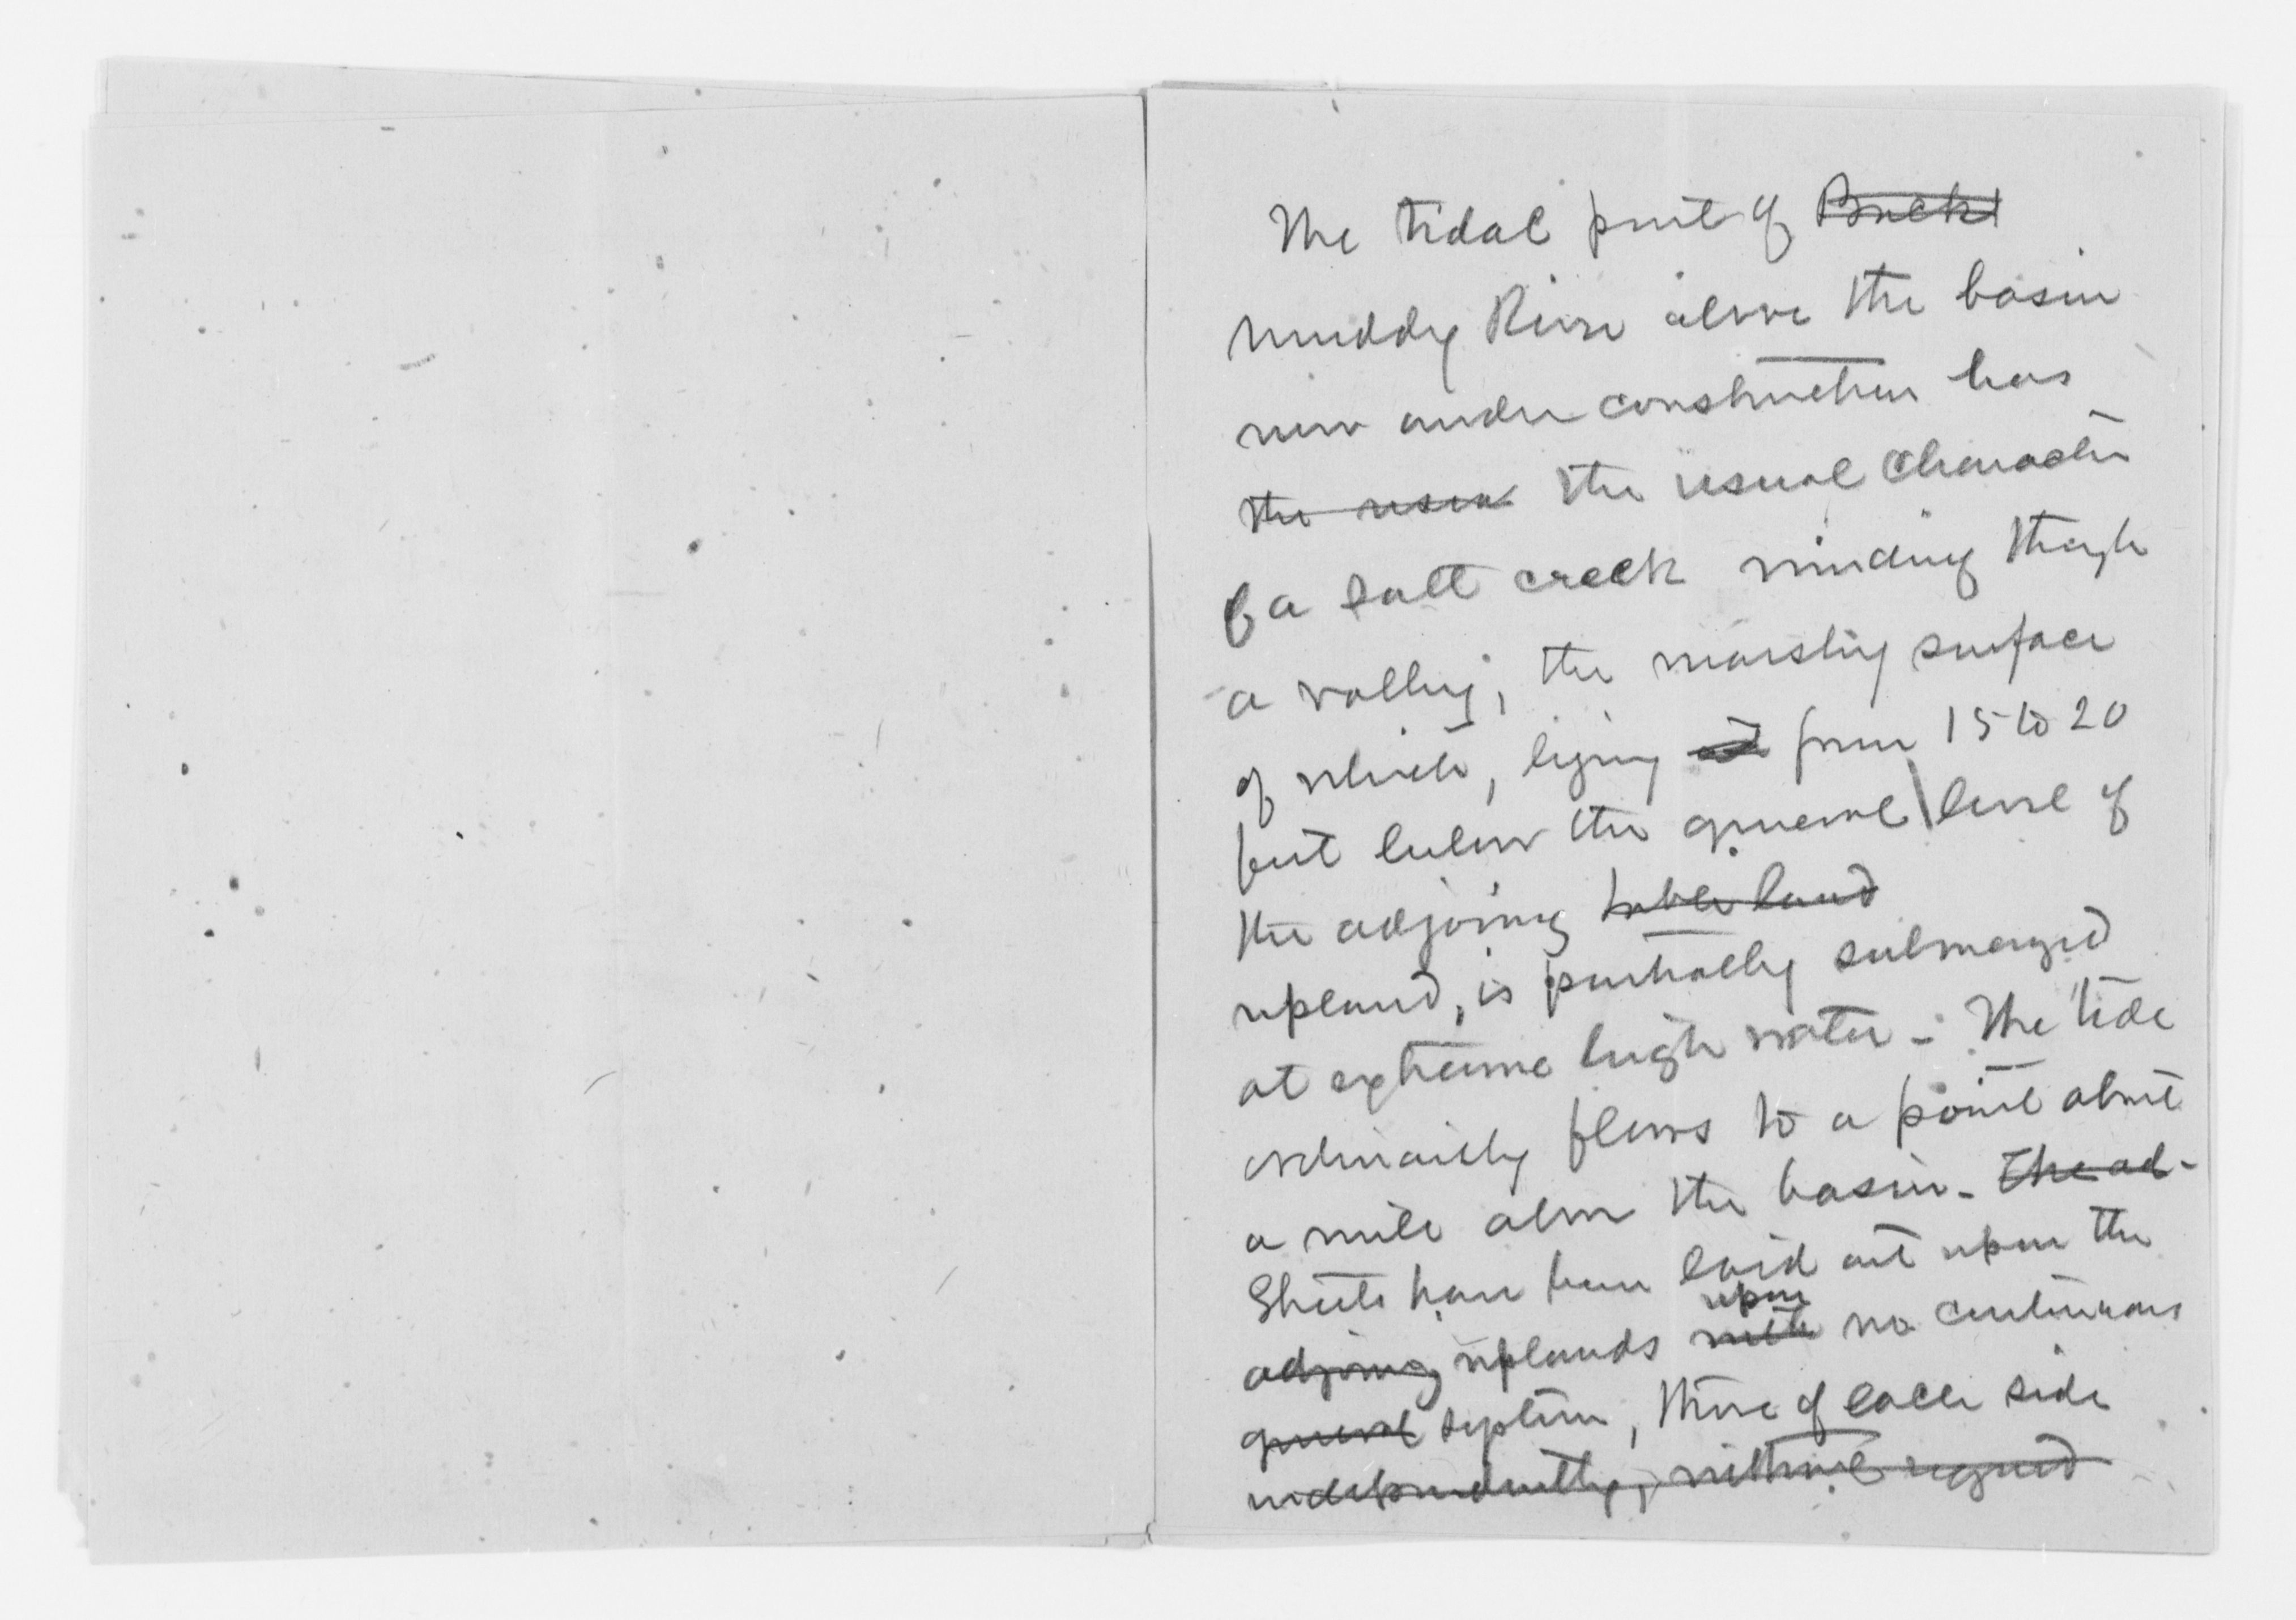 The tidal part of Back
Muddy River above the basin
now under construction has
the usua the usual character
of a salt creek winding through
a valley, the marshy surface
of which, lying at from 15 to 20
feet below the general level of
the adjoining table land
upland, is partially submerged
at extreme high water. The tide
ordinarily flows to a point about
a mile above the basin. The ad-
Streets have been laid out upon the
upon
adjoining uplands with no continuous
general system, those of each side
independently, without regard